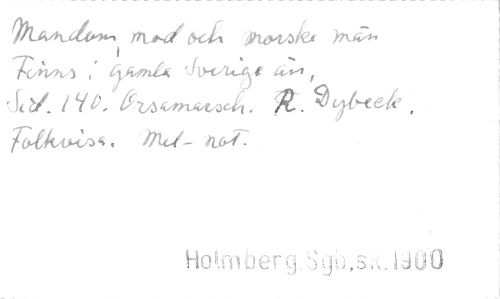 Mandom, mod och morske män
Finns i gamla Sverige än,
Sid. 140. Orsamarsch. R. Dybeck.
Folkvisa. Mel-not.
Holmberg,Sgb,s.k.1900